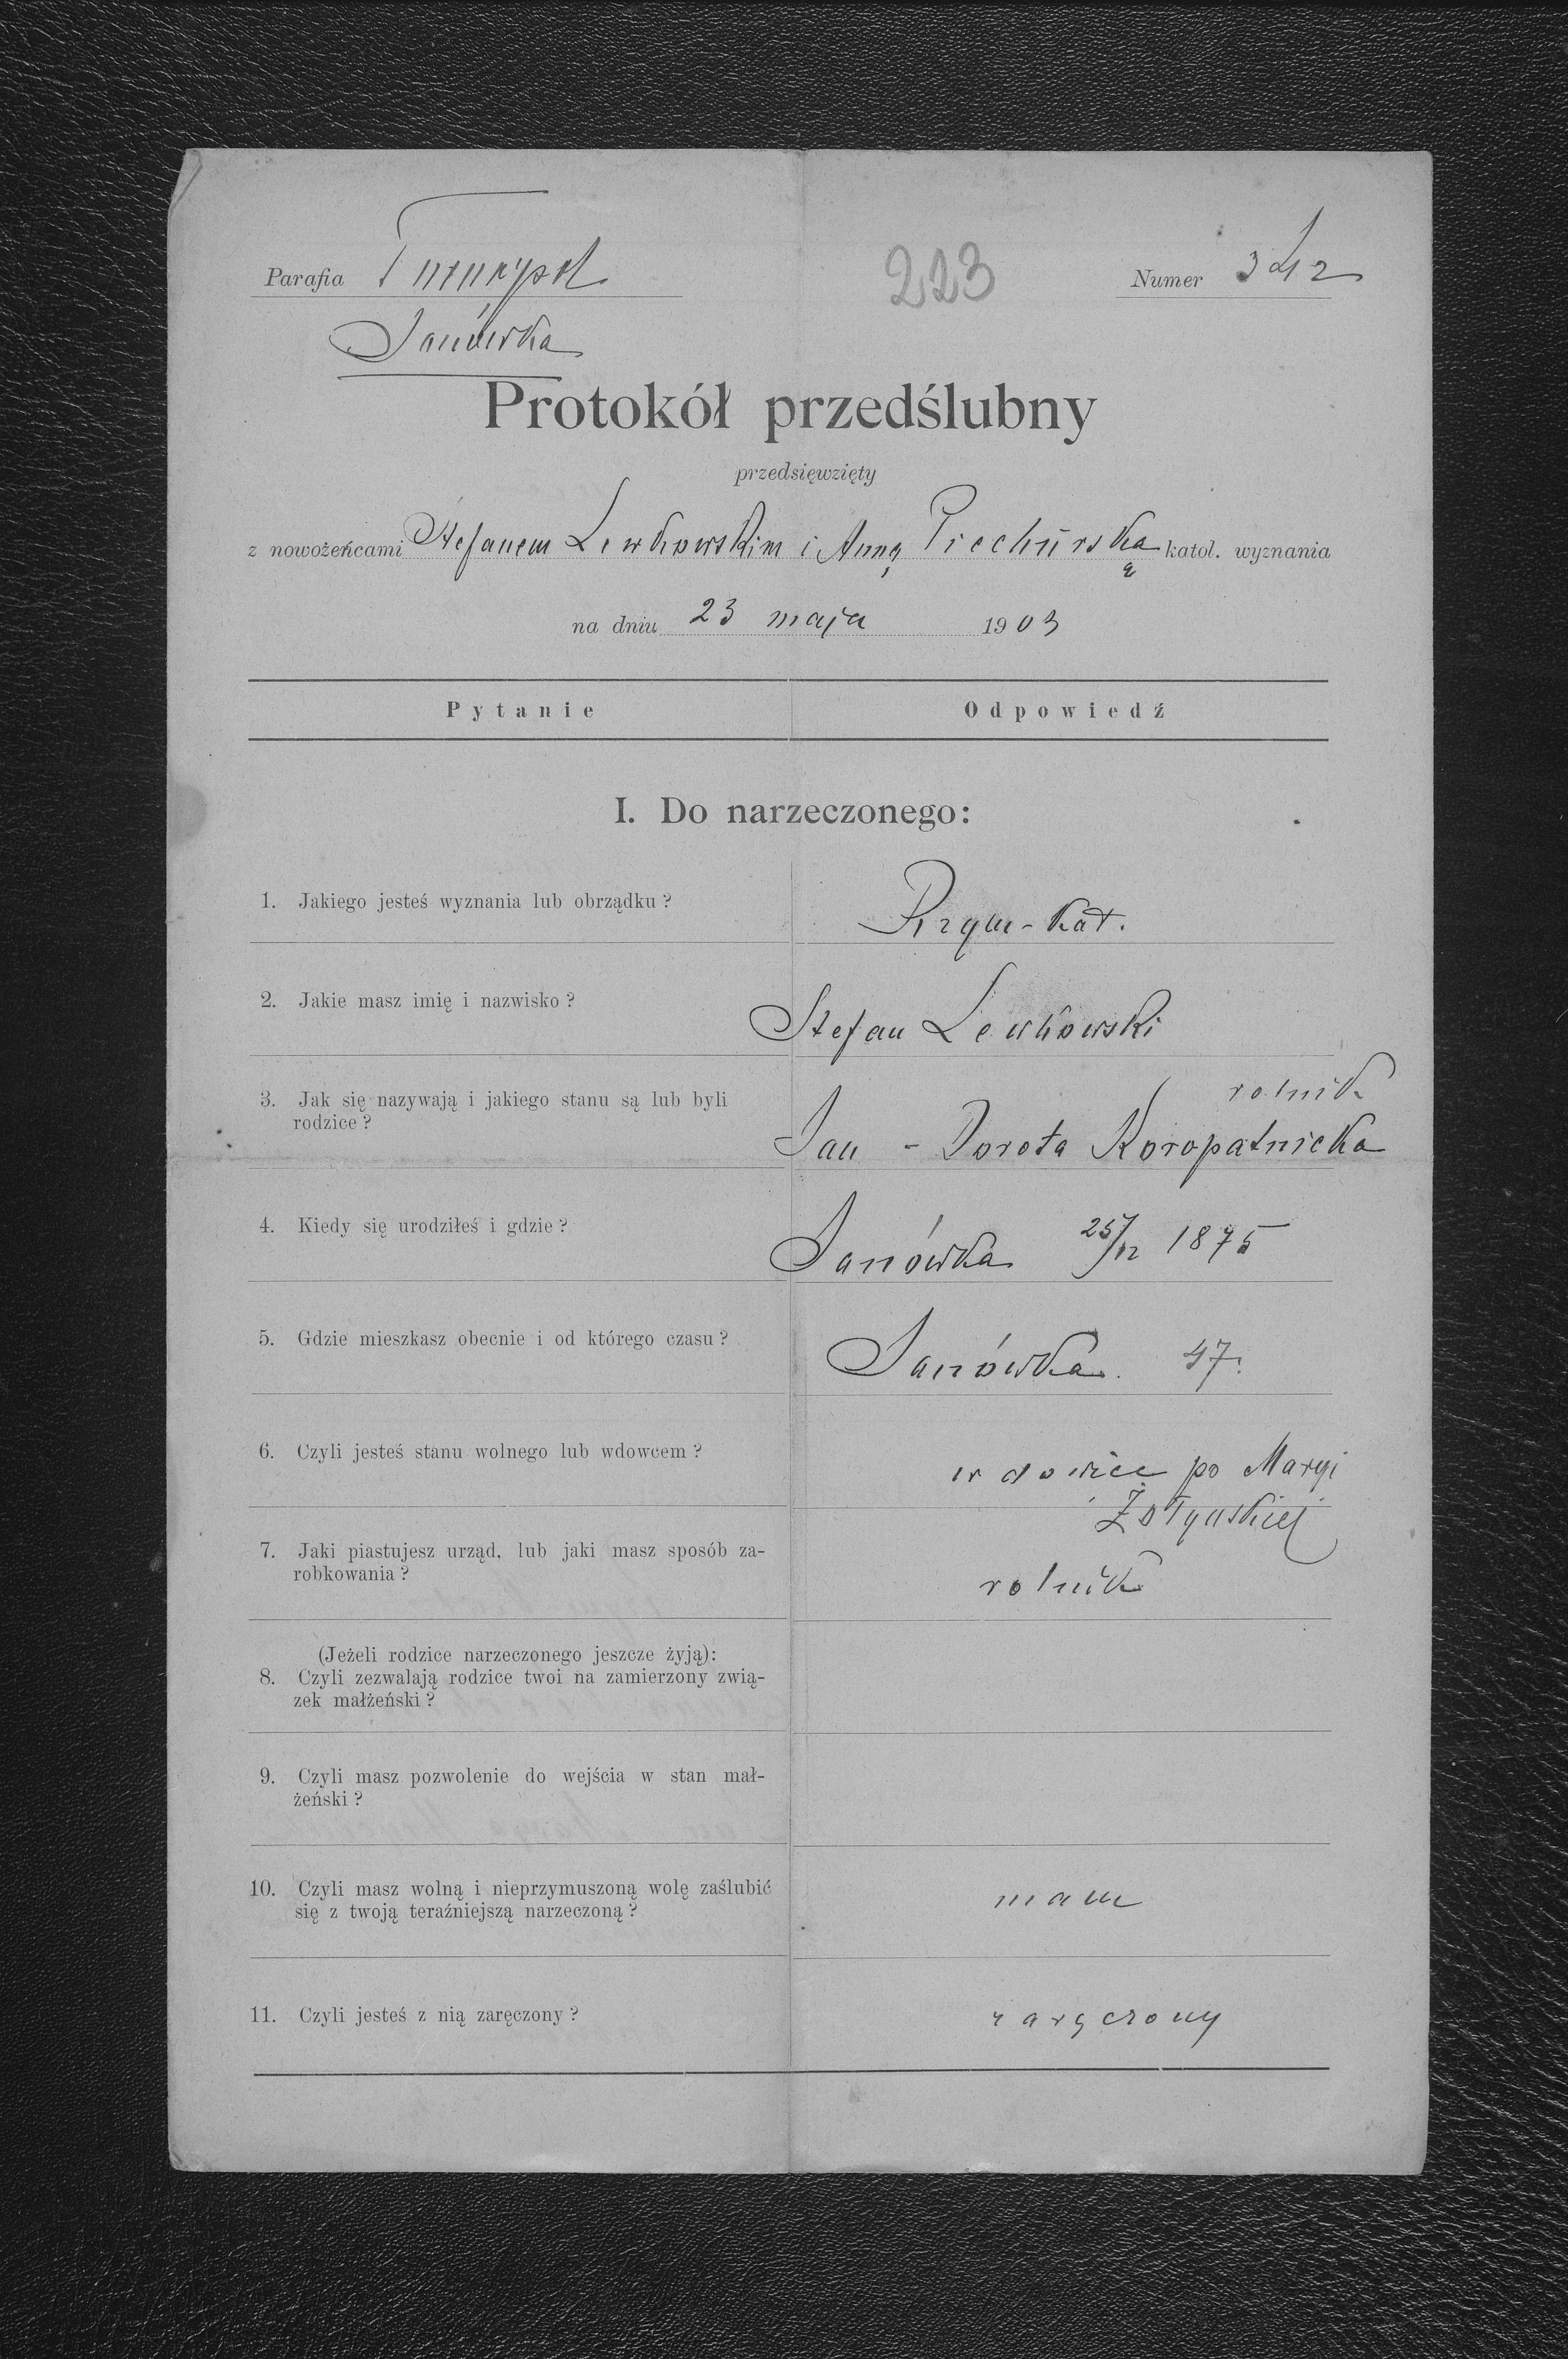 Parafia Turuypol
223
Numer 342
Janówka
Protokół przedślubny
przedsięwzięty
z nowożeńcami Stefanem Lewkowskim i Anną Piechurską katol. wyznania
na dniu 23 maja 1903
Pytanie Odpowiedź
I. Do narzeczonego:
1. Jakiego jesteś wyznania lub obrządku? Rzym-kat.
2. Jakie masz imię i nazwisko? Stefan Lewkowski
rolnik
3. Jak się nazywają i jakiego stanu są lub byli
rodzice? Jan - Dorota Koropatnicka
4. Kiedy się urodziłeś i gdzie? Janówka 25/12 1875
5. Gdzie mieszkasz obecnie i od którego czasu? Janówka 47.
6. Czyli jesteś stanu wolnego lub wdowcem? wdowiec po Maryi
Żołyńskiej
7. Jaki piastujesz urząd, lub jaki masz sposób za-
robkowania? rolnik
(Jeżeli rodzice narzeczonego jeszcze żyją):
8. Czyli zezwalają rodzice twoi na zamierzony zwią-
zek małżeński?
9. Czyli masz pozwolenie do wejścia w stan mał-
żeński?
10. Czyli masz wolną i nieprzymuszoną wolę zaślubić
się z twoją teraźniejszą narzeczoną? mam
11. Czyli jesteś z nią zaręczony? zaręczony